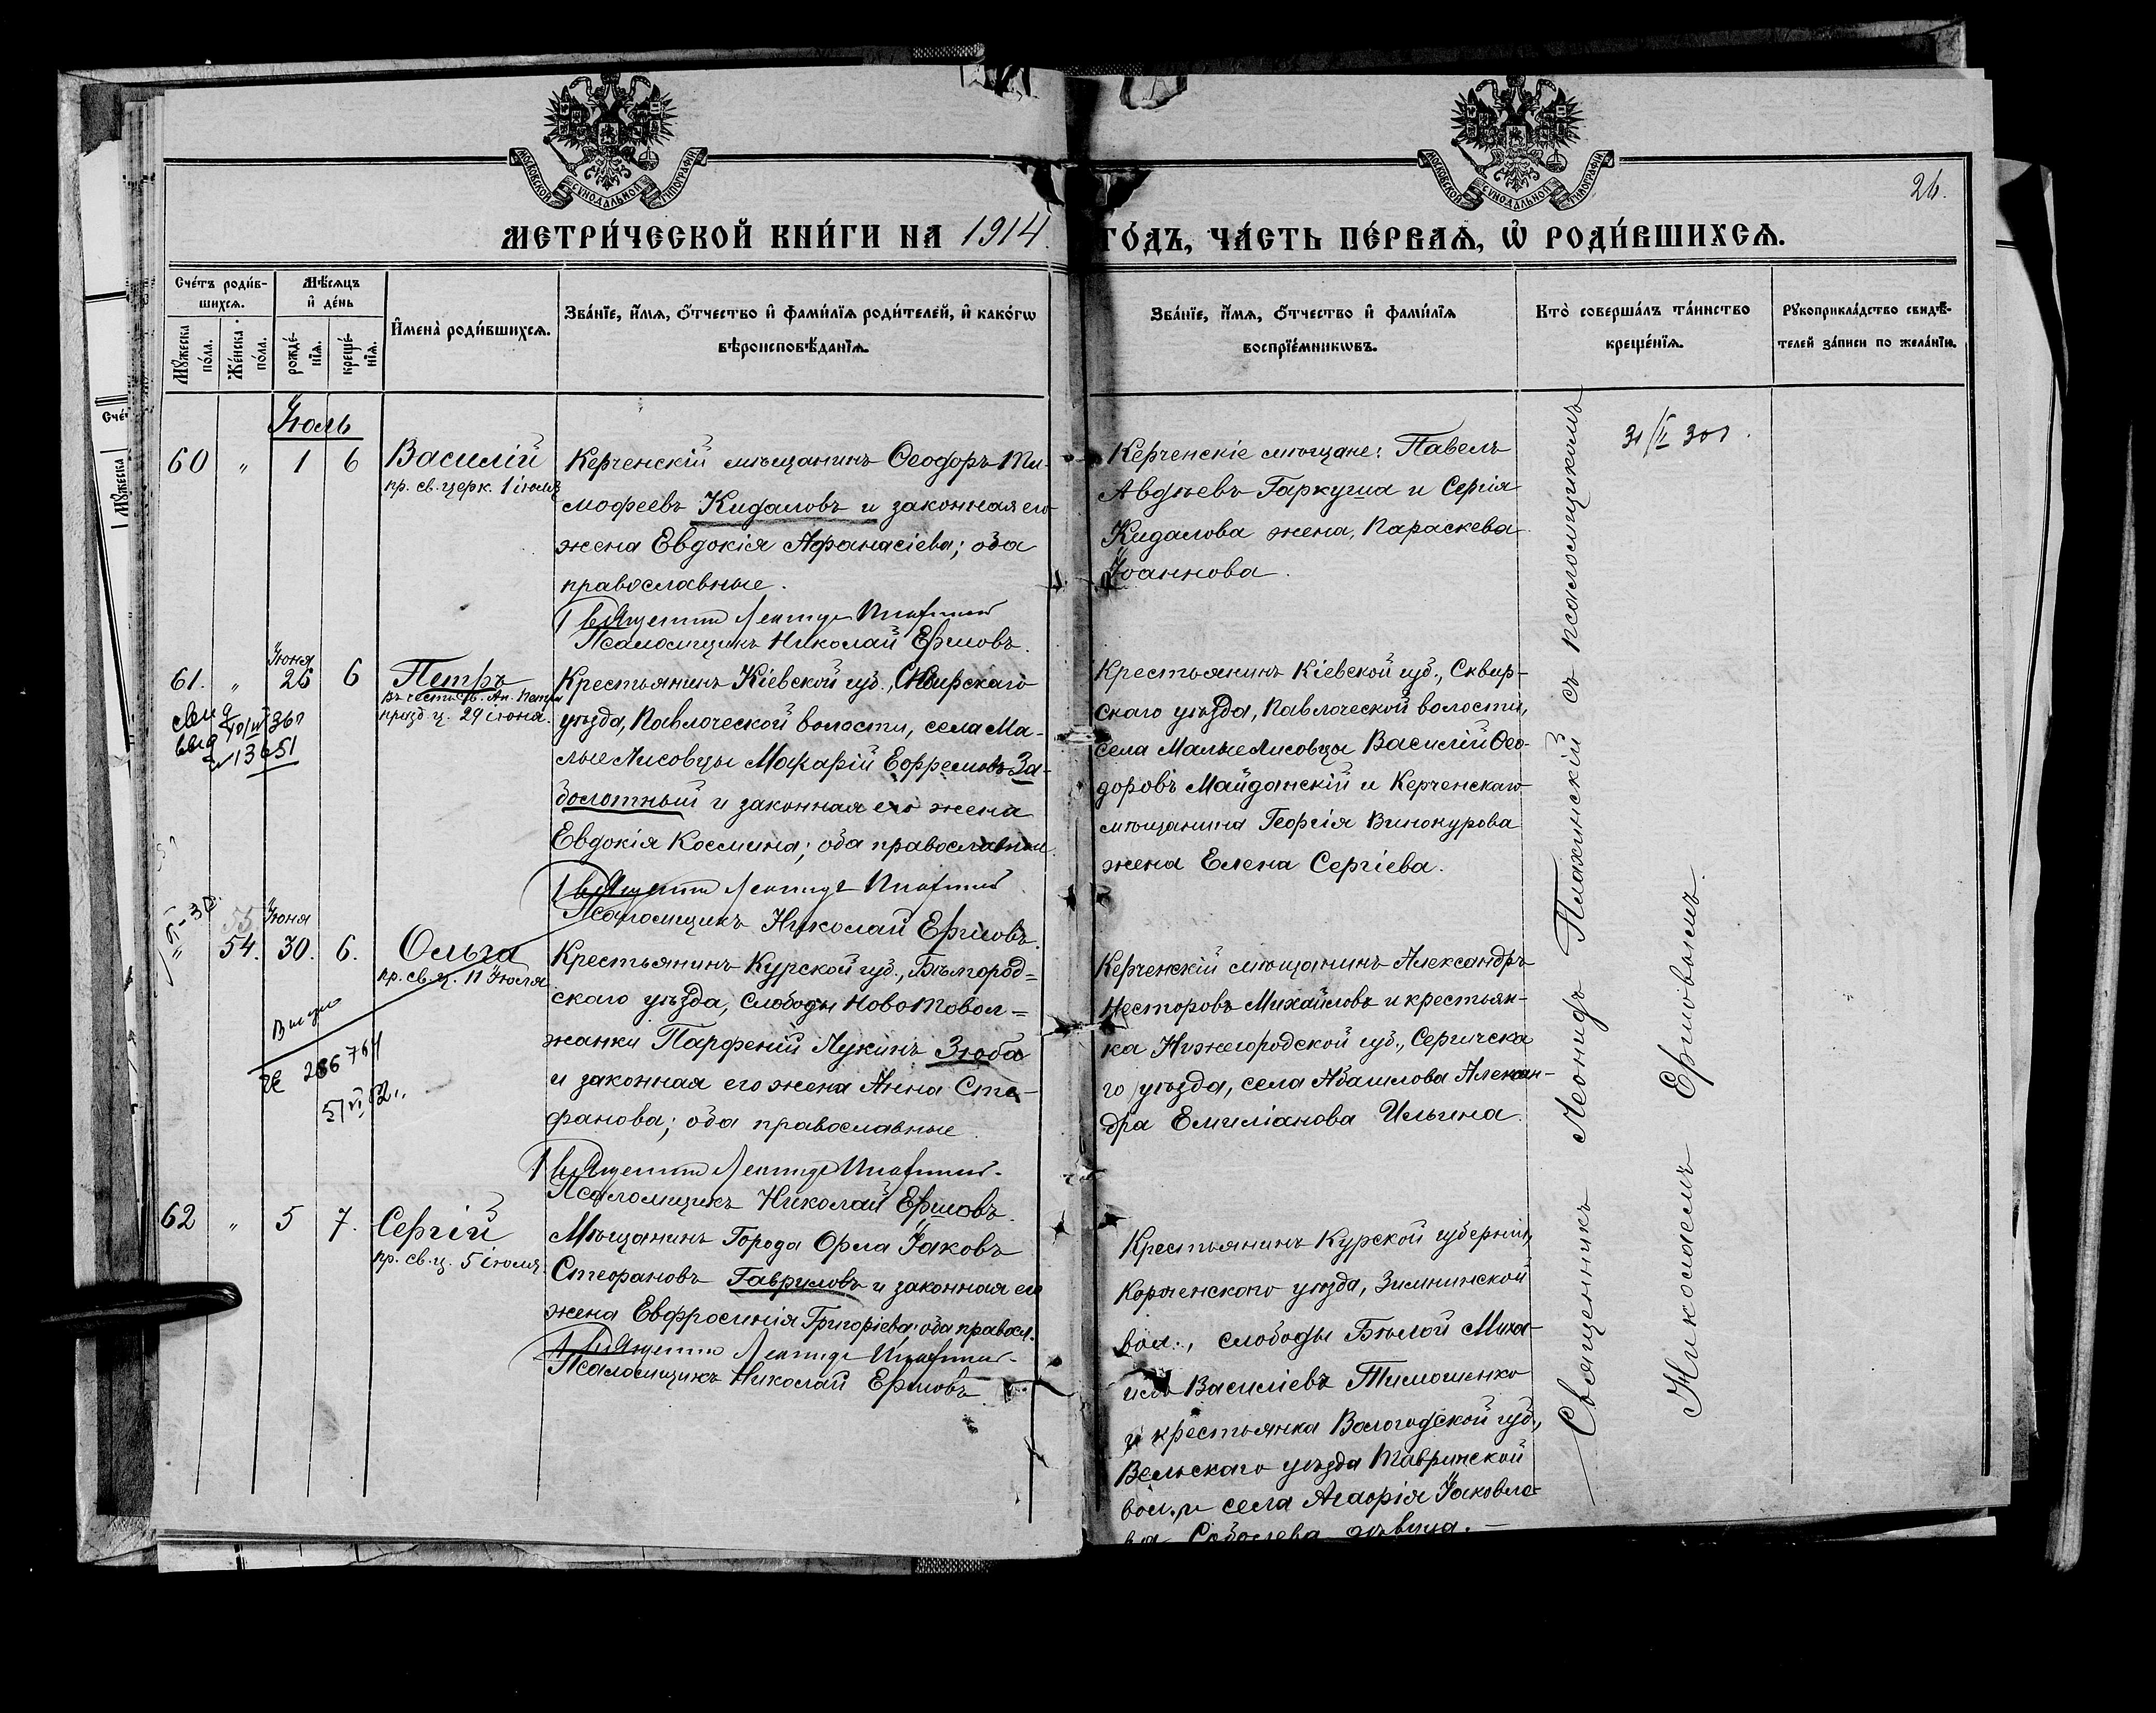 МОСКОВСКОЙ СУНОДАЛЬНОЙ ТИПОГРАФІИ
МОСКОВСКОЙ СУНОДАЛЬНОЙ ТИПОГРАФІИ
26.
МЕТРИ́ЧЕСКОЙ КНИ́ГИ НА 1914 ГО́ДЪ, ЧА́СТЬ ПЕ́РВАѦ, Ѡ҆ РОДИ́ВШИХСѦ.
Сче́тъ роди́в-
шихсѧ.
Мꙋ́жеска по́ла.
Же́нска по́ла.
Мѣ́сѧцъ
и҆ де́нь
рожде́-
нїѧ.
креще́-
нїѧ.
И҆мена̀ роди́вшихсѧ.
Зва́нїе, и҆́мѧ, ѻ҆́тчество и҆ фами́лїѧ роди́телей, и҆ како́гѡ
вѣроисповѣ́данїѧ.
Зва́нїе, и҆́мѧ, ѻ҆́тчество и҆ фами́лїѧ
воспрїе́мникѡвъ.
Кто̀ соверша́лъ та́инство
креще́нїѧ.
Рꙋкоприкла́дство свидѣ́-
телей за́писи по жела́нїю.
Іюль
60 " 1 6 Василій
пр. св. церк. 1 іюля
Керченскій мѣщанинъ Ѳеодоръ Ти-
моѳеевъ Кидаловъ и законная его
жена Евдокія Аѳанасіева; оба
православные.
Псаломщикъ Николай Ершовъ.
Керченскіе мѣщане: Павелъ
Авдѣевъ Гаркуша и Сергія
Кидалова жена, Параскева
Іоаннова.
61. " Іюня 26 6 Петръ
празд. ц. 29 іюня.
13651
Крестьянинъ Кіевской губ., Сквирскаго
уѣзда, Павлоческой волости, села Ма-
лые Лисовцы Макарій Ефремовъ За-
болотный и законная его жена
Евдокія Космина; оба православные.
Псаломщикъ Николай Ершовъ.
Крестьянинъ Кіевской губ., Сквир-
скаго уѣзда, Павлоческой волости,
села Малые Лисовцы Василій Ѳео-
доровъ Майданскій и Керченскаго
мѣщанина Георгія Винокурова
жена Елена Сергіева.
" 54. Іюня 30. 6. Ольга
пр. св. ц. 11 Іюля
Крестьянинъ Курской губ., Бѣлгород=
скаго уѣзда, Слободы НовоТавол=
жанки Парфеній Лукинъ Зюба
и законная его жена Анна Сте-
фанова; оба православные
Псаломщикъ Николай Ершовъ.
Керченскій мѣщанинъ Александръ
Несторовъ Михайловъ и крестьян-
ка Нижегородской губ., Сергичска
го уѣзда, села Абашлова Алексан-
дра Емиліанова Ильина.
62 " 5 7. Сергій
пр. св. ц. 5 іюля.
Мѣщанинъ Города Орла Іаковъ
Стефановъ Гавриловъ и законная его
жена Евфросинія Григоріева; оба правосл.
Псаломщикъ Николай Ершовъ
Крестьянинъ Курской губерніи,
Короченскаго уѣзда, Зимнинской
вол., слободы Бѣлой Миха-
илъ Василіевъ Тимошенко
и крестьянка Вологодской губ.,
Вельскаго уѣзда Тавринской
вол., села Агафія Іаковле-
ва Соболева дѣвица. —
Священникъ Леонидъ Плахинскій съ псаломщикомъ
Николаемъ Ершовомъ.